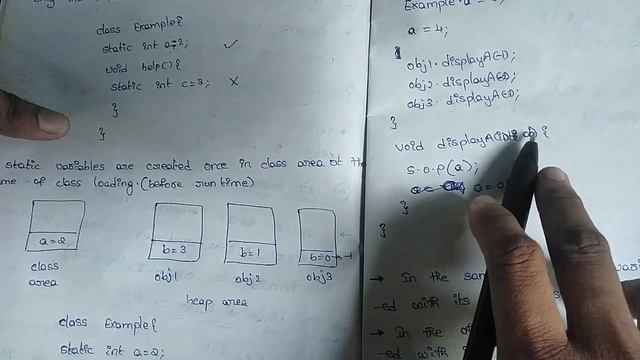 class Example{
static int a=2; ✓
void help(){
static int c=3; X
}
}
static variables are created once in class area at
me of class loading. (before run time)
a=2
b=3
b=1
b=0
class area
obj1
obj2
obj3
heap area
class Example{
static int a=2;
Example
a = 4;
obj1. displayA(-1);
obj2. displayA(
obj3. displayA(
}
void displayA( {
S.O.P(a);
}
}
→ In the
-ed with its
→ In the
-ed